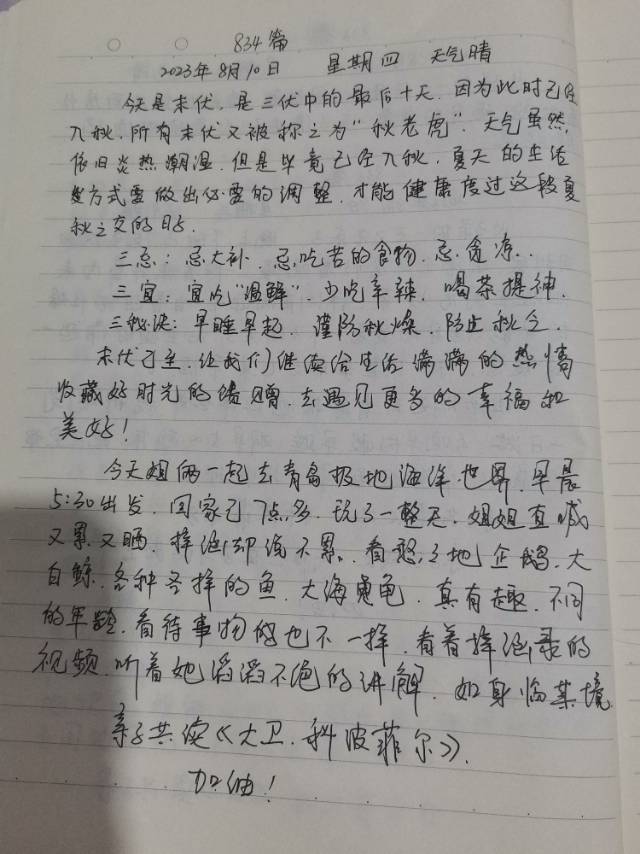 834篇
2023年8月10日 星期四 天气晴
今天是末伏,是三伏中的最后十天.因为此时已经
入秋.所有末伏又被称之为“秋老虎”.天气虽然,
依旧炎热潮湿.但是毕竟已经入秋,夏天的生活
方式要做出必要的调整,才能健康度过这段夏
秋之交的日子.
三忌:忌大补.忌吃苦的食物.忌贪凉..
三宜:宜吃“温鲜”.少吃辛辣.喝茶提神.
三秘诀:早睡早起.谨防秋燥.防止秋乏.
末伏已至.让我们继续给生活满满的热情
收藏好时光的馈赠.去遇见更多的幸福和
美好!
今天姐俩一起去青岛极地海洋世界.早晨
5:30出发.回家已7点多.玩了一整天.姐姐直喊
又累又晒.梓涵却说不累.看憨了地企鹅.大
白鲸.各种各样的鱼.大海龟.真有趣.不同
的年龄.看待事物的也不一样.看着梓涵录的
视频.听着她滔滔不绝的讲解.如身临其境
亲子共读《大卫.科波菲尔》.
加油!